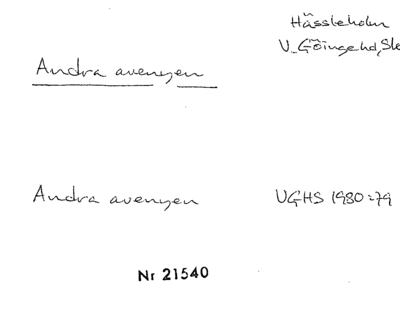 Hässleholm
V. Göingehd, Sk
Andra avenyen
Andra avenyen UGHS 1980:79
Nr 21540